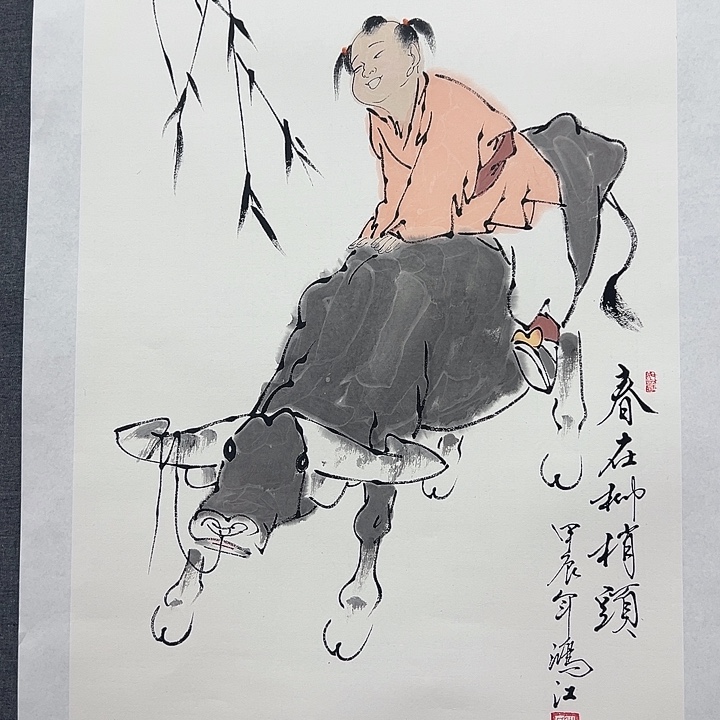 春在柳梢頭
甲辰年鴻江